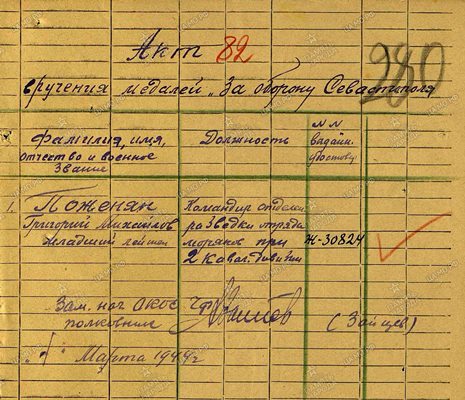 Акт 82
280
вручения медалей „За оборону Севастополя
Фамилия, имя,
отчество и военное
звание
Должность
NN
выдан.
удостов.
1. Поженян
Григорий Михайлов
младший лейтен
Командир отделен
разведки отряда
моряков при
2 кавал. дивизии
Ж-30824
Зам. нач ОКОС ЧФ
полковник
(Зайцев)
" " Марта 1944г